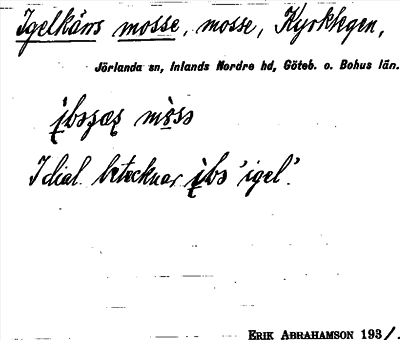 Igelkärrs mosse, mosse, Kyrktegen,
Jörlanda sn, Inlands Nordre hd, Göteb. o. Bohus län.
I dial. betecknar 'igel'.
ERIK ABRAHAMSON 193/.